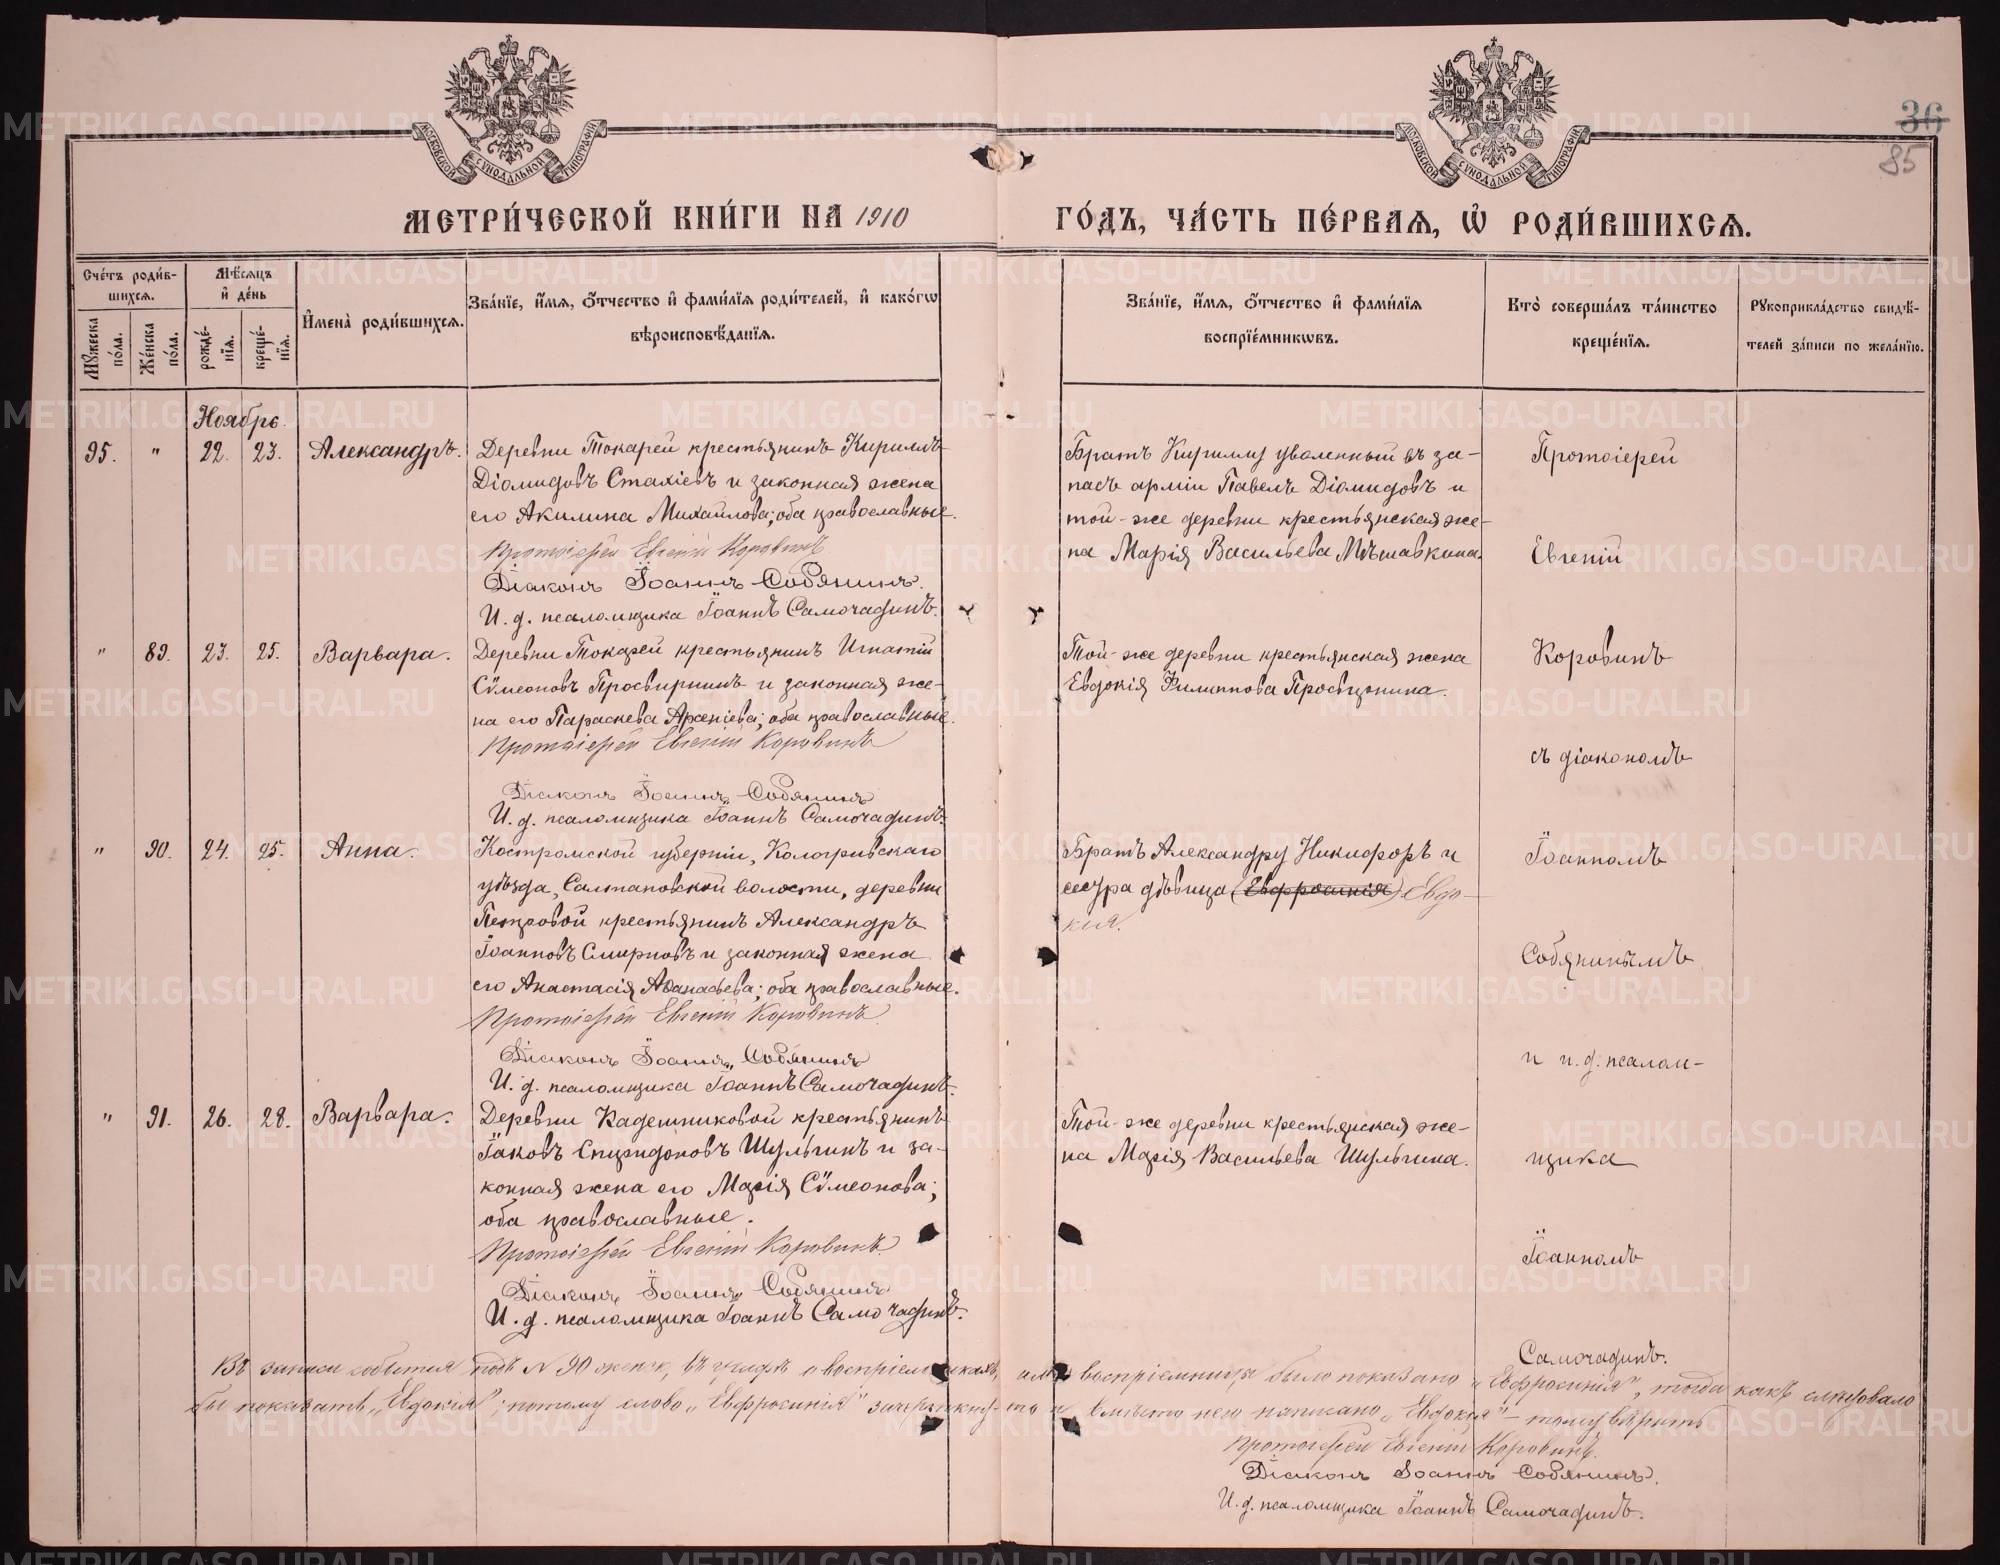 36
85
МОСКОВСКОЙ СѴНОДАЛЬНОЙ ТИПОГРАФІИ
МОСКОВСКОЙ СѴНОДАЛЬНОЙ ТИПОГРАФІИ
МЕТРИ́ЧЕСКОЙ КНИ́ГИ НА 1910
ГО́ДЪ, ЧА́СТЬ ПЕ́РВАѦ, Ѡ҆ РОДИ́ВШИХСѦ.
Сче́тъ роди́в-
шихсѧ.
Мꙋ́жеска
по́ла.
Же́нска
по́ла.
Мѣ́сѧцъ
и҆ де́нь
рожде́-
нїѧ.
креще́-
нїѧ.
И҆мена̀ роди́вшихсѧ.
Зва́нїе, и҆́мѧ, ѻ҆́тчество и҆ фами́лїѧ роди́телей, и҆ како́гѡ
вѣроисповѣ́данїѧ.
Зва́нїе, и҆́мѧ, ѻ҆́тчество и҆ фами́лїѧ
воспрїе́мникѡвъ.
Кто̀ соверша́лъ та́инство
креще́нїѧ.
Рꙋкоприкла́дство свидѣ́-
телей за́писи по жела́нїю.
Ноябрь.
95. " 22. 23. Александръ.
Деревни Токарей крестьянинъ Кириллъ
Діомидовъ Стахіевъ и законная жена
его Акилина Михайлова; оба православные.
Протоіерей Евгеній Коровинъ
Діаконъ Іоаннъ Собянинъ.
И. д. псаломщика Іоаннъ Самочадинъ.
Братъ Кириллу уволенный въ за-
пасъ арміи Павелъ Діомидовъ и
той-же деревни крестьянская же-
на Марія Васильева Мѣшавкина.
" 89. 23. 25. Варвара.
Деревни Токарей крестьянинъ Игнатій
Сѵмеоновъ Просвирнинъ и законная же-
на его Параскева Арсеніева; оба православные.
Протоіерей Евгеній Коровинъ
Діаконъ Іоаннъ Собянинъ
И. д. псаломщика Іоаннъ Самочадинъ.
Той-же деревни крестьянская жена
Евдокія Филиппова
" 90. 24. 25. Анна.
Костромской губерніи, Кологривскаго
уѣзда, Салтановской волости, деревни
Петровой крестьянинъ Александръ
Іоанновъ Смирновъ и законная жена
его Анастасія Аѳанасьева; оба православные.
Протоіерей Евгеній Коровинъ.
Діаконъ Іоаннъ Собянинъ
И. д. псаломщика Іоаннъ Самочадинъ.
Братъ Александру Никифоръ и
сестра дѣвица (Евфросинія) Евдо-
кія.
" 91. 26. 28. Варвара.
Деревни Кадешниковой крестьянинъ
Іаковъ Спиридоновъ Шульгинъ и за-
конная жена его Марія Сѵмеонова;
оба православные.
Протоіерей Евгеній Коровинъ.
Діаконъ Іоаннъ Собянинъ
И. д. псаломщика Іоаннъ Самочадинъ.
Той-же деревни крестьянская же-
на Марія Васильева Шульгина.
Протоіерей
Евгеній
Коровинъ
съ діакономъ
Іоанномъ
Собянинымъ
и и. д. псалом-
щика
Іоанномъ
Самочадинъ.
Въ записи событія подъ № 90 женск, въ графѣ о воспріемникахъ, имя воспріемницы было показано „Евфросинія", тогда какъ слѣдовало
бы показать „Евдокія"; потому слово „Евфросинія" зачеркнуто и вмѣсто него написано „Евдокія" – тому вѣрить
Протоіерей Евгеній Коровинъ.
Діаконъ Іоаннъ Собянинъ.
И. д. псаломщика Іоаннъ Самочадинъ.
METRIKI.GASO-URAL.RU